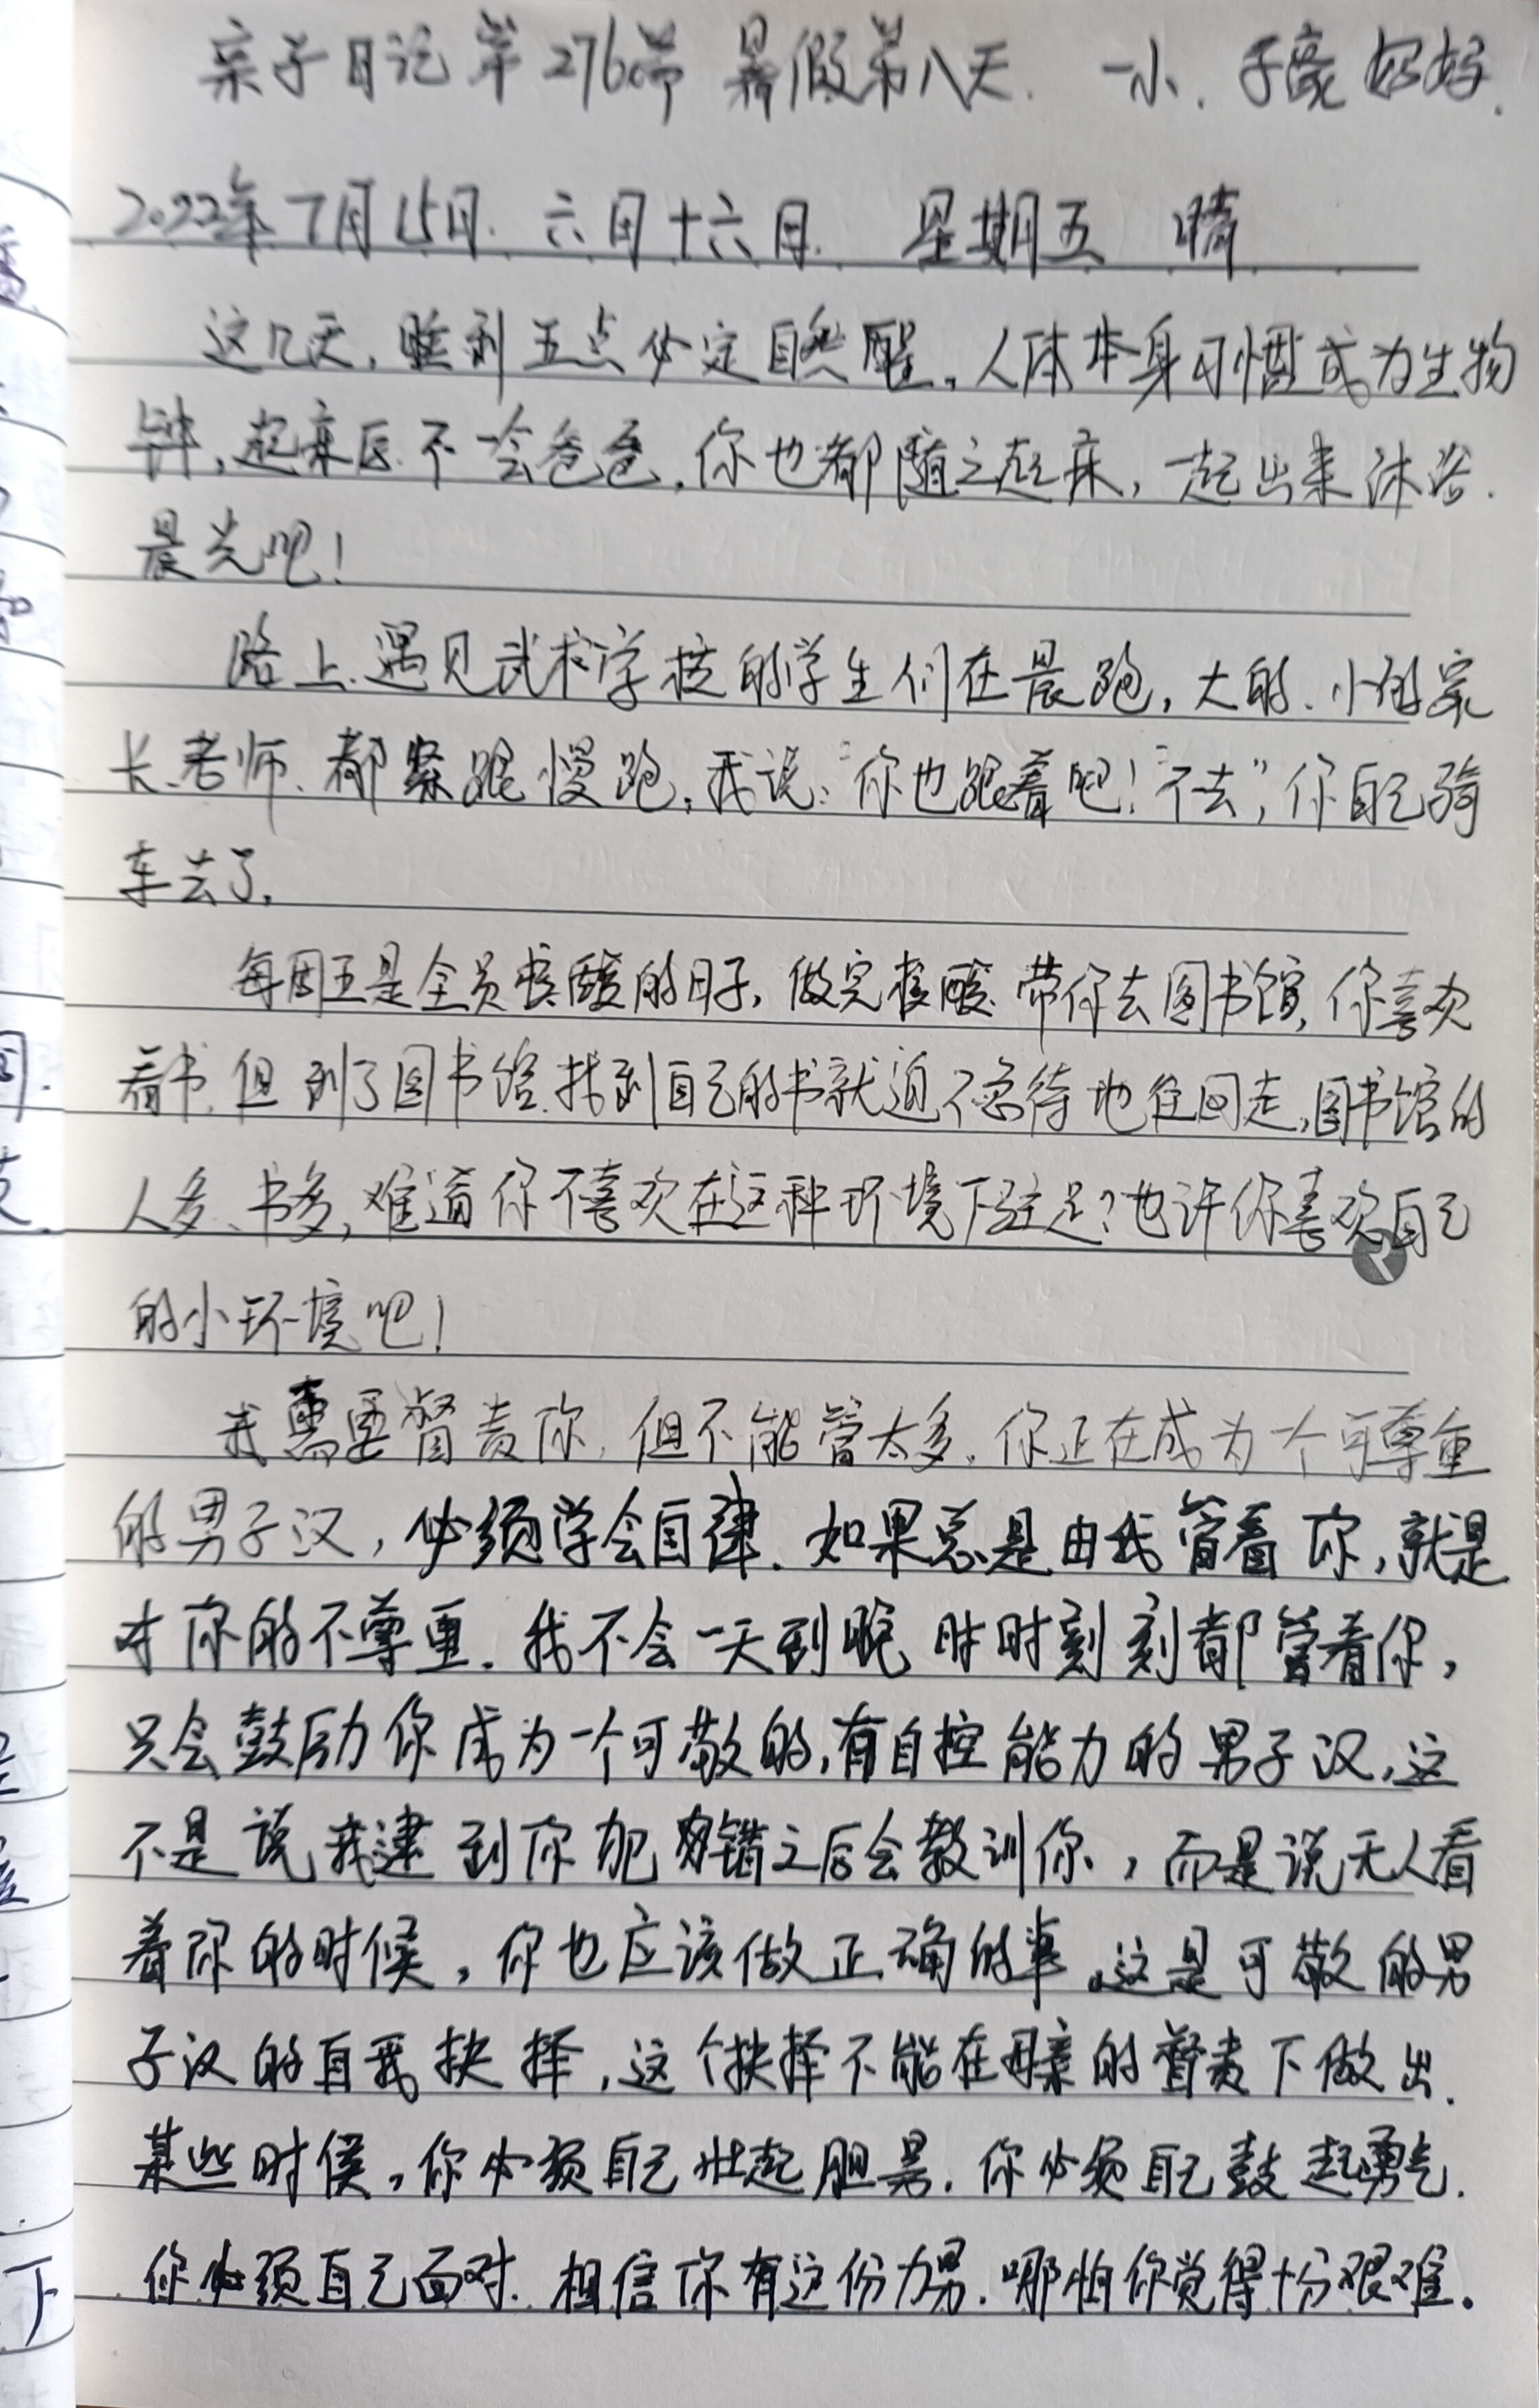 亲子日记第276篇 暑假第八天. 一小. 子豪妈妈.
2022年7月15日. 六月十六日. 星期五 晴
这几天, 睡到五点必定自然醒, 人体本身习惯成为生物
钟, 起来后不一会爸爸, 你也都随之起床, 一起出来沐浴
晨光吧!
路上遇见武术学校的学生们在晨跑, 大的、小的家
长、老师、都紧跟慢跑, 我说:“你也跟着吧!”“不去”, 你自己骑
车去了。
每周五是全员核酸的日子, 做完核酸带你去图书馆, 你喜欢
看书, 但到了图书馆找到自己的书就迫不急待地往回走, 图书馆的
人多、书多, 难道你不喜欢在这种环境下驻足? 也许你喜欢自己
的小环境吧!
我需要督责你, 但不能管太多, 你正在成为一个可尊重
的男子汉, 必须学会自律. 如果总是由我管着你, 就是
对你的不尊重. 我不会一天到晚时时刻刻都管着你,
只会鼓励你成为一个可敬的, 有自控能力的男子汉, 这
不是说我逮到你犯错之后会教训你, 而是说无人看
着你的时候, 你也应该做正确的事。这是可敬的男
子汉的自我抉择, 这个抉择不能在母亲的督责下做出.
某些时候, 你必须自己壮起胆量. 你必须自己鼓起勇气.
你必须自己面对. 相信你有这份力量. 哪怕你觉得十分艰难.